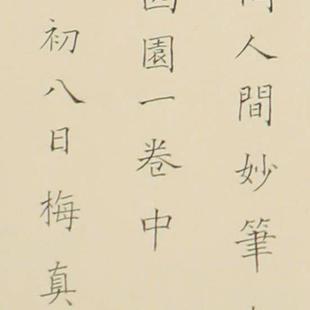 人間妙筆
園一卷中
初八日梅真